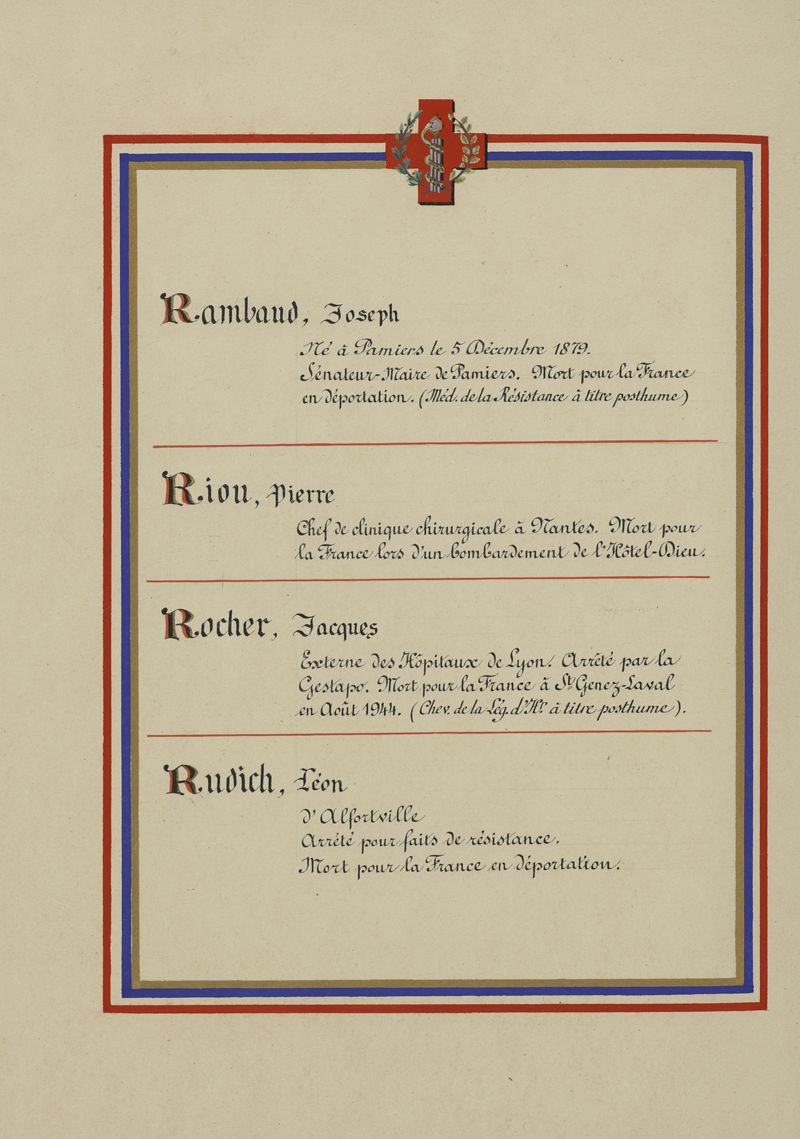 Rambaud, Joseph
Né à Pamiers le 5 Décembre 1879.
Sénateur-Maire de Pamiers. Mort pour la France
en déportation. (Méd. de la Résistance à titre posthume)
Riou, Pierre
Chef de clinique chirurgicale à Nantes. Mort pour
la France lors d'un bombardement de l'Hôtel-Dieu.
Rocher, Jacques
Externe des Hôpitaux de Lyon. Arrêté par la
Gestapo. Mort pour la France à St Genez-Laval
en Août 1944. (Chev. de la Lég. d'Hr. à titre posthume).
Rudich, Léon
d'Alfortville
Arrêté pour faits de résistance.
Mort pour la France en déportation.